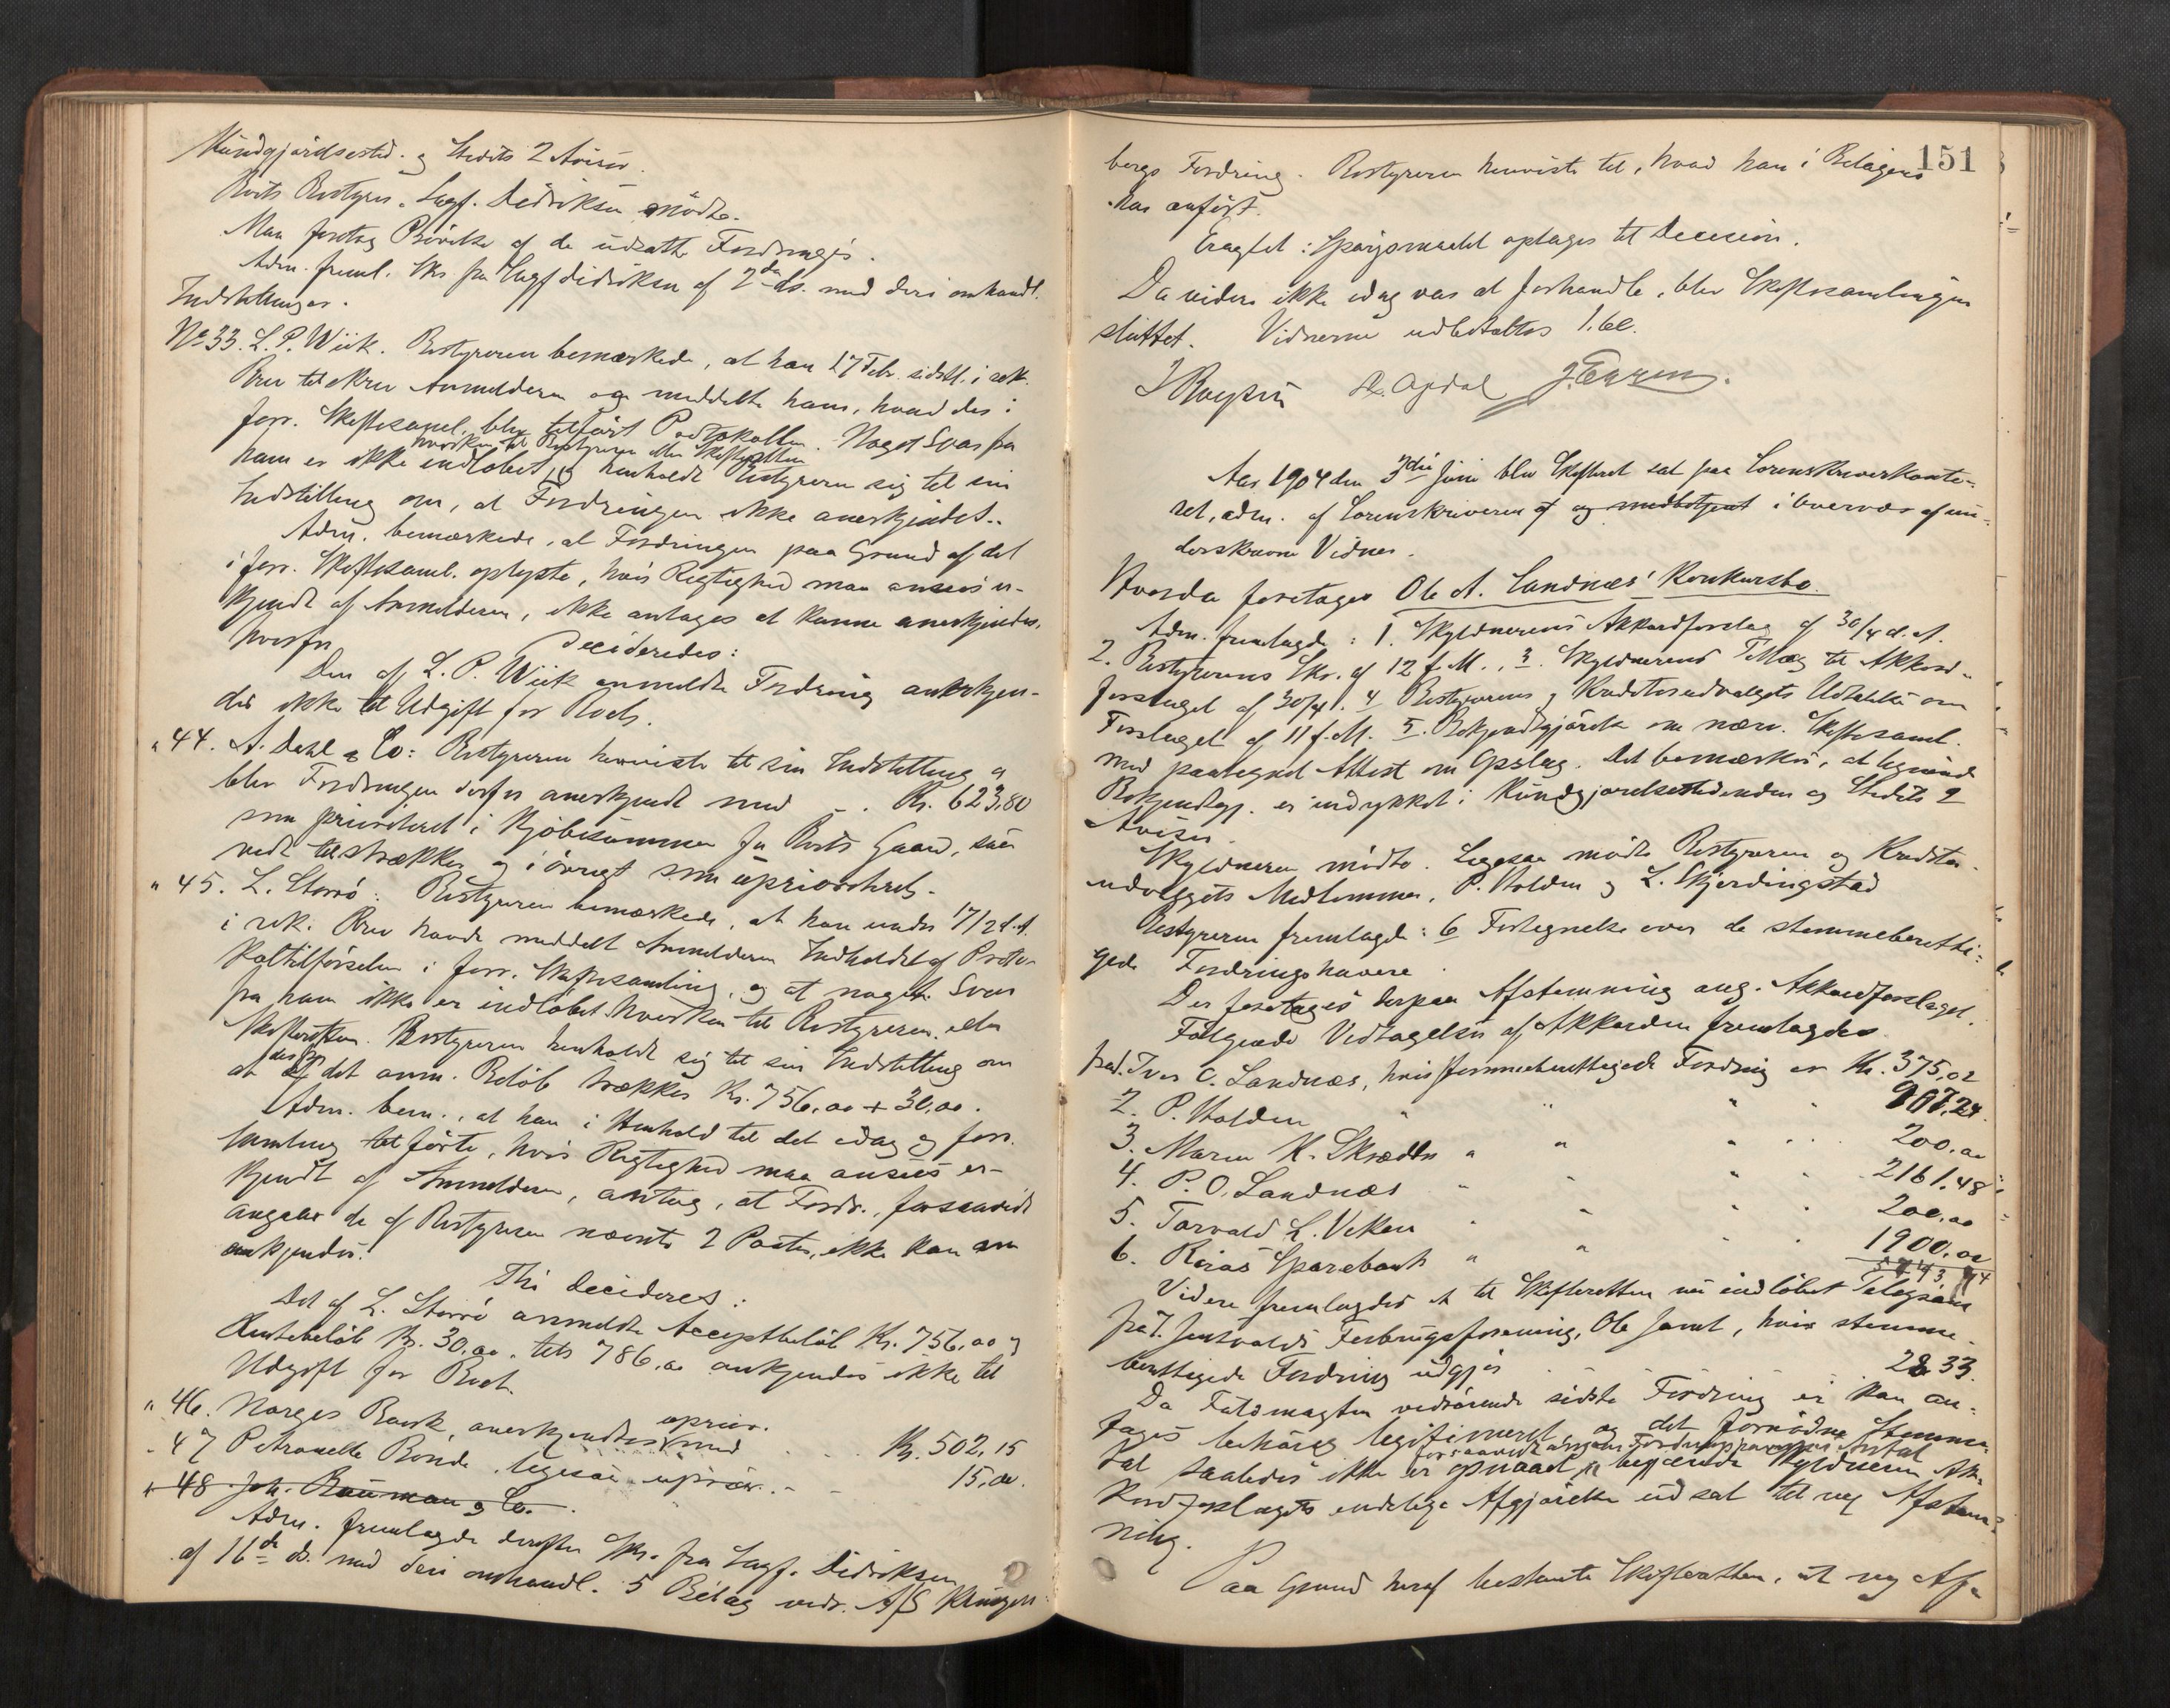 Kundgjørelsestid. og Stedets 2 Aviser.
Boets Bestyrer, Sagf. Didriksen mødte.
Man foretog Prøvelse af de udsatte Fordringer.
Adm. freml. Skr. fra Sagf Didriksen af 2den ds. med deri omhandl.
Indstillinger.
No 33. L. P. Wiik. Bestyreren bemærkede, at han 17 Febr. sidstl. i rek.
Brev tilskrev Anmelderen og meddelte ham, hvad der i
forr. Skiftesaml. blev tilført Protokollen. Noget Svar fra
hverken til Bestyreren eller Skifteretten
ham er ikke indløbet, og henholdt Bestyreren sig til sin
Indstilling om, at Fordringen ikke anerkjendes.
Adm. bemærkede, at Fordringen paa Grund af det
i forr. Skiftesaml. oplyste, hvis Rigtighed maa ansees er-
kjendt af Anmelderen, ikke antages at kunne anerkjendes,
hvorfor decideredes:
Den af L. P. Wiik anmeldte Fordring anerkjen-
des ikke til Udgift for Boet.
" 44. A. Dahl & Co: Bestyreren henviste til sin Indstilling og
blev Fordringen derfor anerkjendt med - . Kr. 623,80
som prioriteret i Kjøbesummen for Boets Gaard, saa
vidt tilstrækker og i øvrigt som uprioriteret.
" 45. L. Storrø: Bestyreren bemærkede, at han under 17/2 d. A.
i rek. Brev havde meddelt Anmelderen Indholdet af Proto-
koltilførselen i forr. Skiftesamling, og at noget Svar
fra ham ikke er indløbet hverken til Bestyreren eller
Skifteretten. Bestyreren henholdt sig til sin Indstilling om
at der fra det anm. Beløb trækkes Kr. 756,00 + 30,00.
Adm. bem., at han i Henhold til det idag og forr.
Samling tilførte, hvis Rigtighed maa ansees er-
kjendt af Anmelderen, antog, at Fordr., forsaavidt
angaar de af Bestyreren nævnte 2 Poster, ikke kan an
erkjendes.
Thi decideres:
Det af L. Storrø anmeldte Acceptbeløb Kr. 756,00 og
Rentebeløb Kr. 30,00, tils 786,00 ankjendes ikke til
Udgift for Boet.
" 46. Norges Bank, anerkjendtes uprior. med Kr. 502,15
" 47 Petronelle Bonde, ligesaa uprior. - - 15,00.
" 48 Joh. Bauman & Co.
Adm. fremlagde derefter Skr. fra Sagf. Didriksen
af 16de ds. med deri omhandl. 5 Bilag vedr. A/S Klingen-
151
bergs Fordring. Bestyreren henviste til, hvad han i Bilagene
har anført.
Eragtet: Spørgsmaalet optages til Decision.
Da videre ikke idag var at forhandle, blev Skiftesamlingen
sluttet. Vidnerne udbetaltes 1.60.
Aar 1904 den 3die Juni blev Skifteret sat paa Sorenskriverkonto-
ret, adm. af Sorenskriveren og medbetjent i Overvær af un-
derskrevne Vidner.
Hvorda foretages Ole A. Sandnæs' Konkursbo.
Adm. fremlagde: 1. Skyldnerens Akkordforslag af 30/4 d. A.
2. Bestyrerens Skr. af 12 f. M., 3. Skyldnerens Tillæg til Akkord-
forslaget af 30/4. 4 Bestyrerens og Kreditorudvalgets Udtalelse om
Forslaget af 11 f. M. 5. Bekjendtgjørelse om nærv. Skiftesaml.
med paategnet Attest om Opslag. Det bemærkes, at lignende
Bekjendtgj. er indrykket i Kundgjørelsestidenden og Stedets 2
Aviser.
Skyldneren mødte. Ligesaa mødte Bestyreren og Kreditor-
udvalgets Medlemmer, P. Holden og L. Skjerdingstad
Bestyreren fremlagde: 6 Fortegnelse over de stemmeberetti-
gede Fordringshavere.
Der foretages derpaa Afstemning ang. Akkordforslaget.
Følgende Vedtagelser af Akkorden fremlagdes
fra 1. Iver O. Sandnæs, hvis stemmeberettigede Fordring er Kr. 375,02
2. P. Holden " " " . 907,24
3. Maren K. Skrædder " " " . 200,00
4. P. O. Sandnæs " " " . 2161,48
5. Torvald L. Veken " " " . 200,00
6. Røros Sparebank " " " . 1900,00
Videre fremlagdes et til Skifteretten nu indløbet Telegram
fra 7. Forbrugsforening, Ole Jamt, hvis stemme-
berettigede Fordring udgjør 28 33.
Da Fuldmagten vedrørende sidste Fordring ei kan an-
tages behørig legitimeret og det fornødne Stemme-
forsaavidt angaar Fordringshavernes Antal
tal saaledes ikke er opnaaet, begjærede Skyldneren Ak-
kordforslagets endelige Afgjørelse udsat til ny Afstem-
ning.
Paa Grund heraf bestemte Skifteretten, at ny Af-